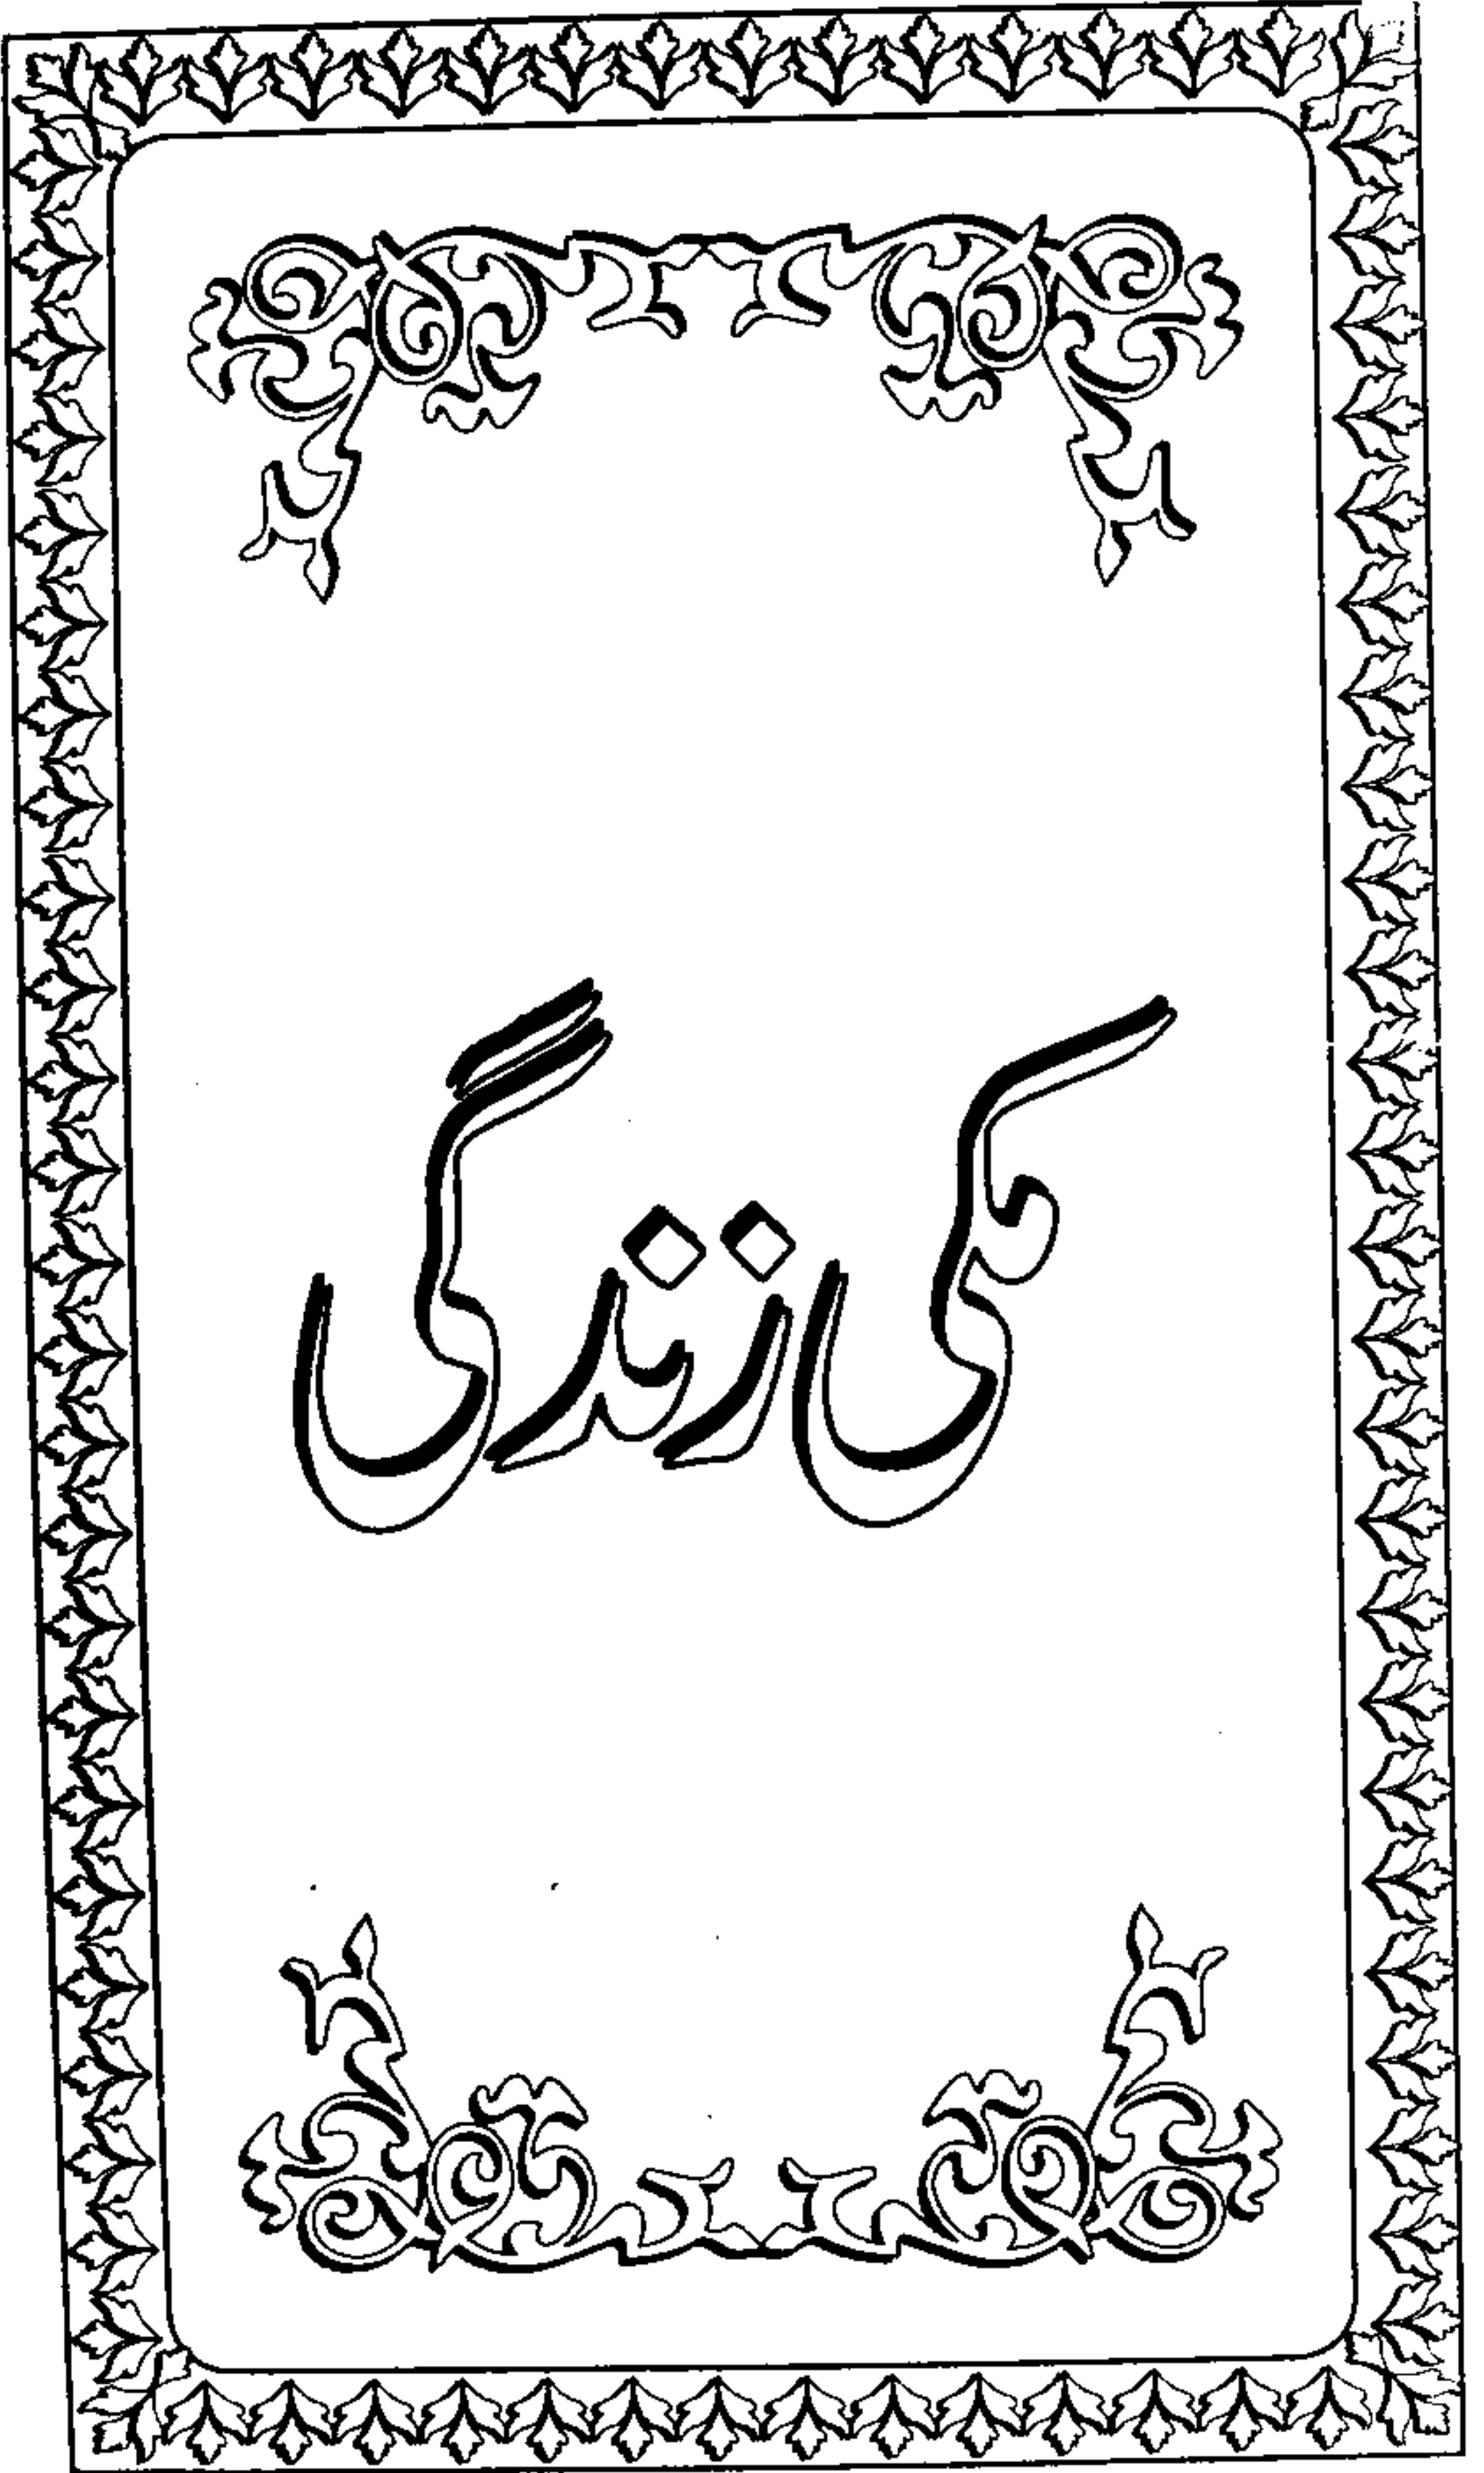 مکی زندگی